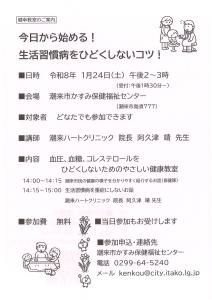 健幸教室のご案内
今日から始める!
生活習慣病をひどくしないコツ!
■日時 令和8年 1月24日(土) 午後2~3時
(受付:午後1時30分~)
■会場 潮来市かすみ保健福祉センター
(潮来市島須777)
■対象 どなたでも参加できます
■講師 潮来ハートクリニック 院長 阿久津 靖 先生
■内容 血圧、血糖、コレステロールを
ひどくしないためのやさしい健康教室
14:00~14:15
14:15~15:00 生活習慣病を重症にしないお話
潮来ハートクリニック 院長 阿久津 靖 先生
■参加費 無料
■当日参加もお受けします
■参加申込・連絡先
潮来市かすみ保健福祉センター
電話 0299-64-5240
メール kenkou@city.itako.lg.jp